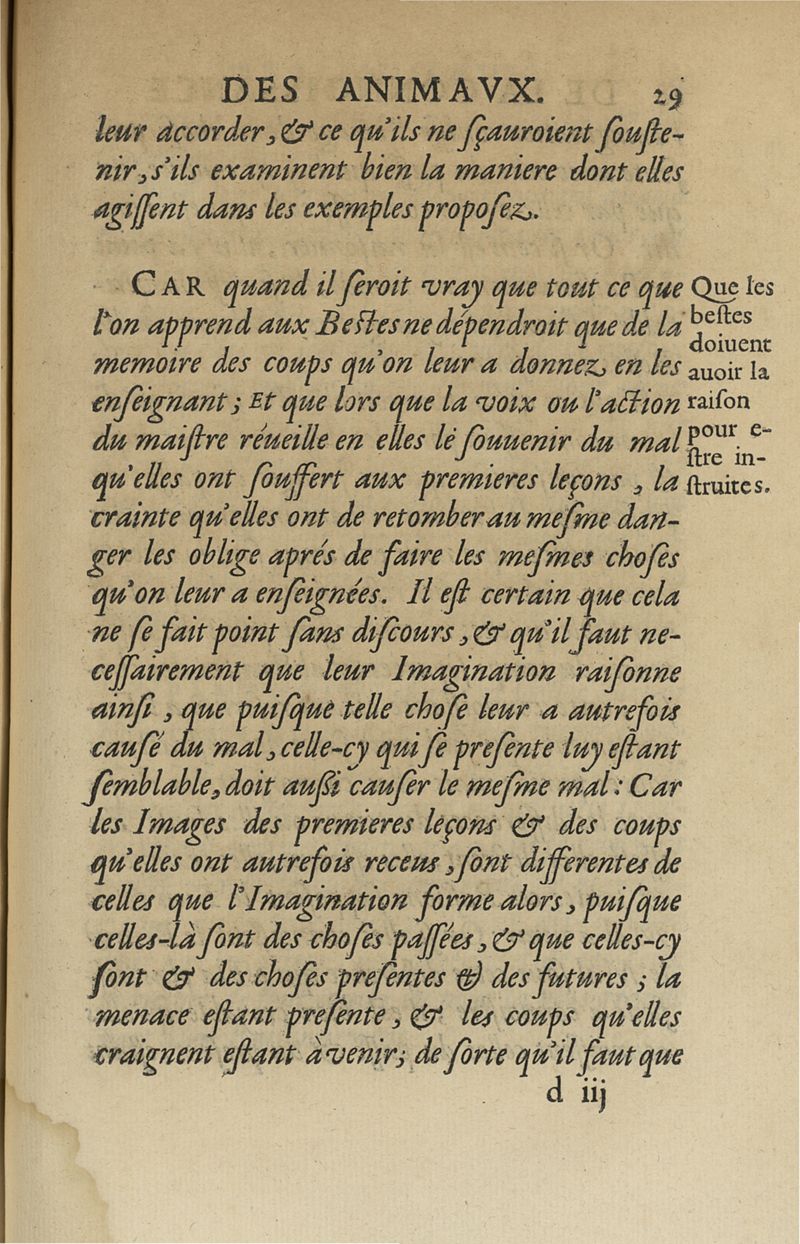 DES ANIMAVX. 29
leur accorder, & ce qu'ils ne sçauroient souste-
nir, s'ils examinent bien la maniere dont elles
agissent dans les exemples proposez.
CAR quand il seroit vray que tout ce que
l'on apprend aux Bestes ne dépendroit que de la
memoire des coups qu'on leur a donnez en les
enseignant ; Et que lors que la voix ou l'action
du maistre réueille en elles le souuenir du mal
qu'elles ont souffert aux premieres leçons , la
crainte qu'elles ont de retomber au mesme dan-
ger les oblige aprés de faire les mesmes choses
qu'on leur a enseignées. Il est certain que cela
ne se fait point sans discours , & qu'il faut ne-
cessairement que leur Imagination raisonne
ainsi , que puisque telle chose leur a autrefois
causé du mal, celle-cy qui se presente luy estant
semblable, doit aussi causer le mesme mal : Car
les Images des premieres leçons & des coups
qu'elles ont autrefois receus , sont differentes de
celles que l'Imagination forme alors , puisque
celles-là sont des choses passées , & que celles-cy
sont & des choses presentes & des futures ; la
menace estant presente , & les coups qu'elles
craignent estant à venir ; de sorte qu'il faut que
d iij
Que les
bestes
doiuent
auoir la
raison
pour e-
stre in-
struites.